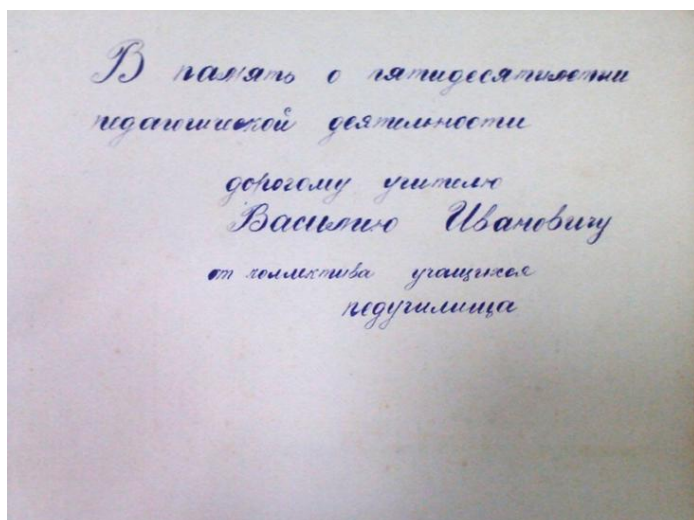 В память о пятидесятилетии
педагогической деятельности
дорогому учителю
Василию Ивановичу
от коллектива учащихся
педучилища